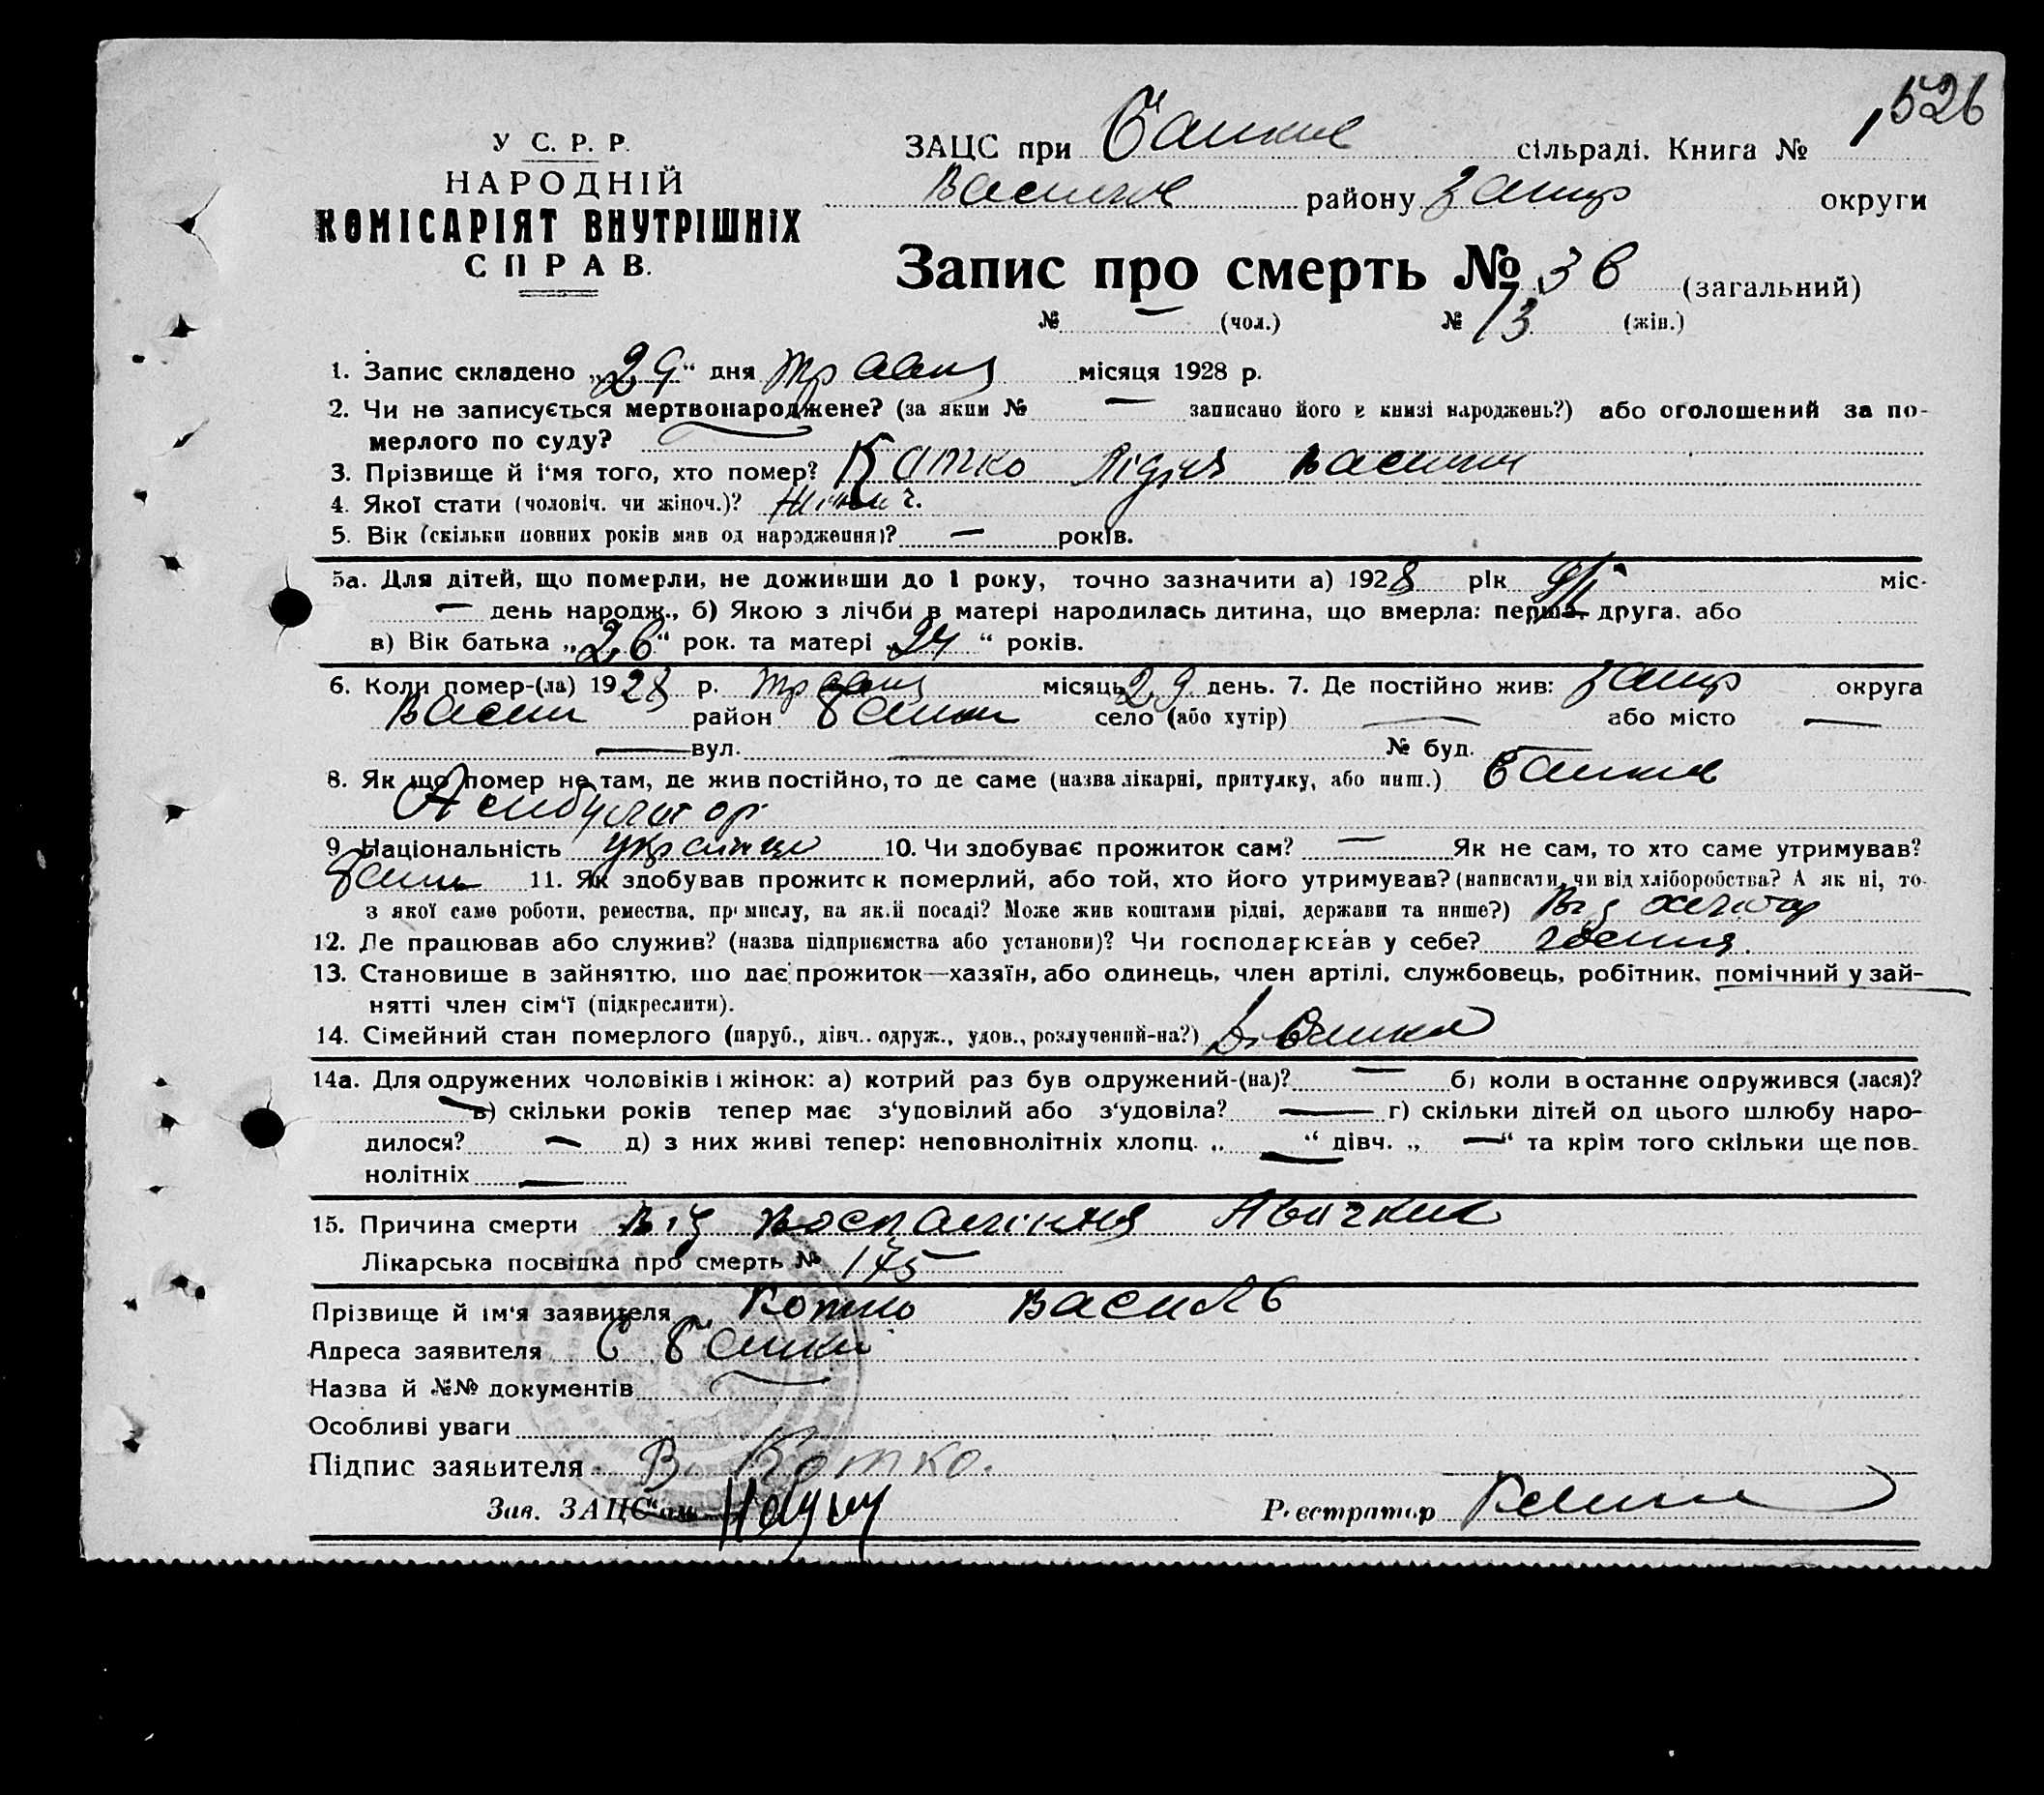 526
У С. Р. Р.
НАРОДНІЙ
КОМІСАРІЯТ ВНУТРІШНІХ
СПРАВ.
ЗАЦС при сільраді. Книга №
району Запор округи
Запис про смерть № 36 (загальний)
№ — (чол.) № 13 (жін.)
1. Запис складено „29“ дня травня місяця 1928 р.
2. Чи не записується мертвонароджене? (за яким № — записано його в книзі народжень?) або оголошений за по-
мерлого по суду?
3. Прізвище й ім'я того, хто помер? Котко Лідія
4. Якої стати (чоловіч. чи жіноч.)? жіноч.
5. Вік (скільки повних років мав од народження)? — років.
5а. Для дітей, що померли, не доживши до 1 року, точно зазначити а) 1928 рік 9/I міс-
— день народж., б) Якою з лічби в матері народилась дитина, що вмерла: перша, друга, або
в) Вік батька „26“ рок. та матері „24“ років.
6. Коли помер-(ла) 1928 р. травня місяць 29 день. 7. Де постійно жив: Запор округа
Васил район село (або хутір) — або місто —
— вул. — № буд. —
8. Як що помер не там, де жив постійно, то де саме (назва лікарні, притулку, або инш.)
Амбулатор
9. Національність 10. Чи здобуває прожиток сам? — Як не сам, то хто саме утримував?
11. Як здобував прожиток померлий, або той, хто його утримував? (написати, чи від хліборобства? А як ні, то
з якої саме роботи, ремества, промислу, на якій посаді? Може жив коштами рідні, держави та инше?) Від
12. Де працював або служив? (назва підприємства або установи)? Чи господарював у себе?
13. Становище в зайняттю, що дає прожиток—хазяїн, або одинець, член артілі, службовець, робітник, помічний у зай-
нятті член сім'ї (підкреслити).
14. Сімейний стан померлого (паруб., дівч.. одруж., удов., розлучений-на?) Дівчина
14а. Для одружених чоловіків і жінок: а) котрий раз був одружений-(на)? — б) коли в останнє одружився (лася)?
— в) скільки років тепер має з'удовілий або з'удовіла? — г) скільки дітей од цього шлюбу наро-
дилося? — д) з них живі тепер: неповнолітніх хлопц. „—“ дівч. „—“ та крім того скільки ще пов-
нолітніх —
15. Причина смерти Від Воспаління
Лікарська посвідка про смерть № 175
Прізвище й ім'я заявителя Котко Василь
Адреса заявителя С
Назва й №№ документів
Особливі уваги
Підпис заявителя В. Котко.
Зав. ЗАЦС'ом
Реєстратор